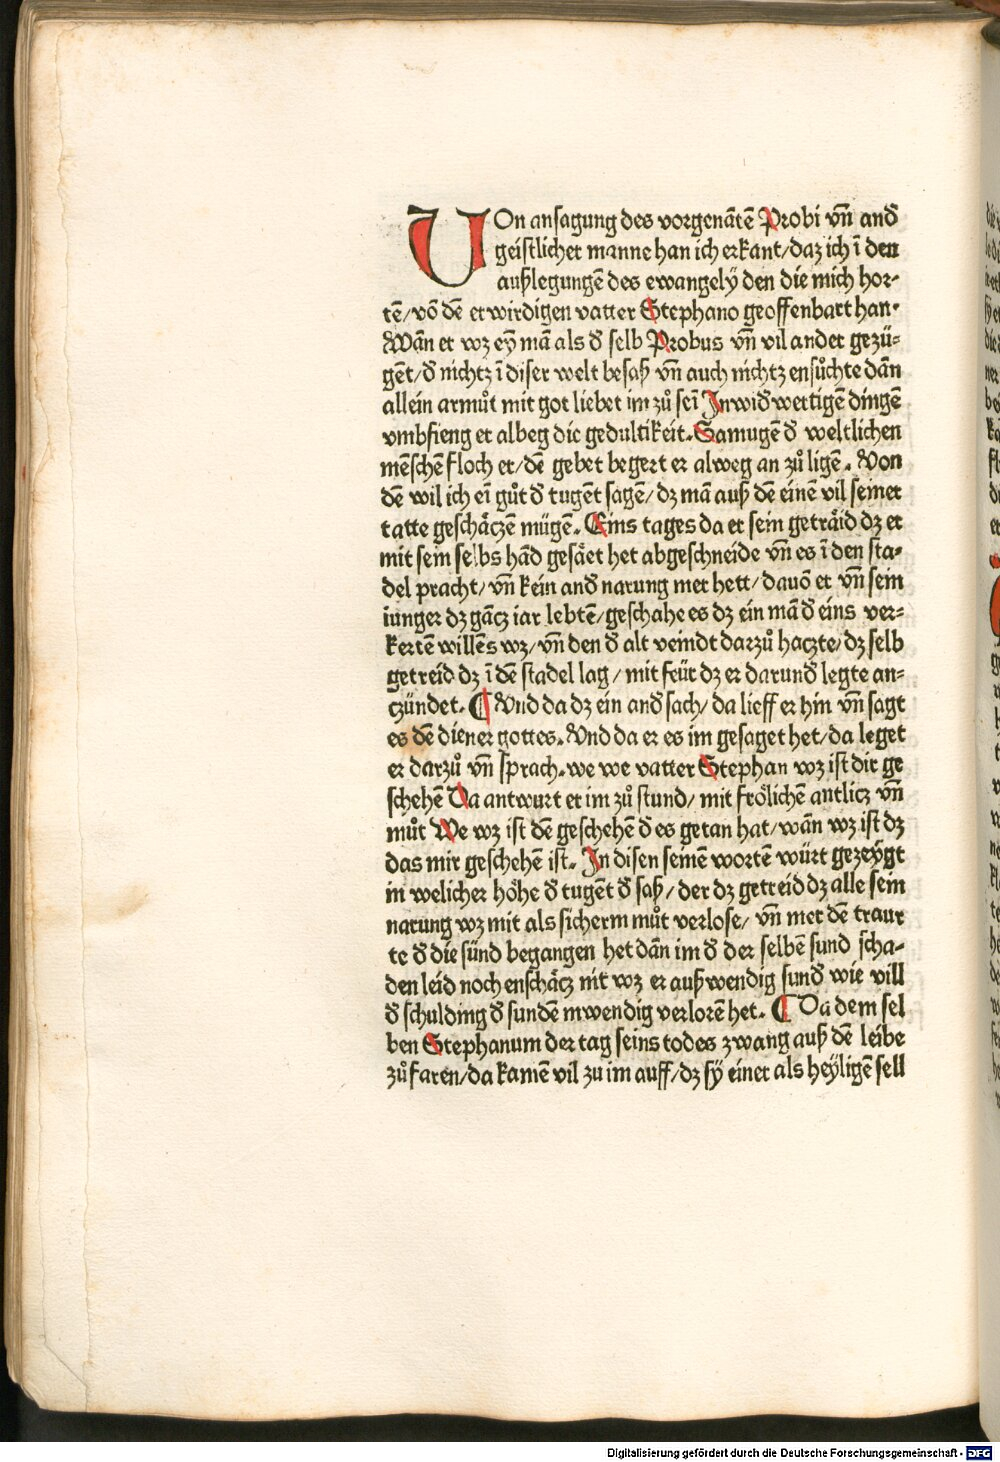 VOn ansagung des vorgenātē Probi vñ and̄
geistlicher manne han ich erkant/daz ich ī den
außlegungē des ewangelÿ den die mich hor-
tē/vō dē erwirdigen vatter Stephano geoffenbart han.
Wān er wz eÿ mā als d̄ selb Probus vñ vil ander gezü-
gēt/d̄ nichtz ī diser welt besaß vñ auch nichtz ensůchte dān
allein armůt mit got liebet im zů seī Jn wid̄wertigē dingē
vmbfieng er albeg die gedultikeit. Samugē d̄ weltlichen
mēschē floch er/dē gebet begert er alweg an zů ligē. Von
dē wil ich eī gůt d̄ tugēt sagē/dz mā auß dē einē vil seiner
tatte geschäczē mügē. Eins tages da er sein geträid dz er
mit sein selbs hād gesäet het abgeschneide vñ es ī den sta-
del pracht/vñ kein and̄ narung mer hett/davō er vñ sein
iunger dz gācz iar lebtē/geschahe es dz ein mā d̄ eins ver-
kertē willēs wz/vñ den d̄ alt veindt darzů haczte/dz selb
getreid dz ī dē stadel lag/mit feür dz er darund̄ legte an-
czündet. ¶ Vnd da dz ein and̄ sach/da lieff er hin vñ sagt
es dē diener gottes. Vnd da er es im gesaget het/da leget
er darzů vñ sprach. we we vatter Stephan wz ist dir ge
schehē Da antwurt er im zů stund/mit frölichē antlicz vñ
můt We wz ist dē geschehē d̄ es getan hat/wān wz ist dz
das mir geschehē ist. Jn disen seinē wortē würt gezeÿgt
in welicher höhe d̄ tugēt d̄ saß/der dz getreid dz alle sein
narung wz mit als sicherm můt verlose/vñ mer dē traur
te d̄ die sünd begangen het dān im d̄ der selbē sund scha-
den leid noch enschäcz nit wz er außwendig sund̄ wie vill
d̄ schulding d̄ sundē inwendig verlorē het. ¶ Da dem sel
ben Stephanum der tag seins todes zwang auß dē leibe
zů faren/da kamē vil zu im auff/dz sÿ einer als heÿligē sell
Digitalisierung gefördert durch die Deutsche Forschungsgemeinschaft - DFG